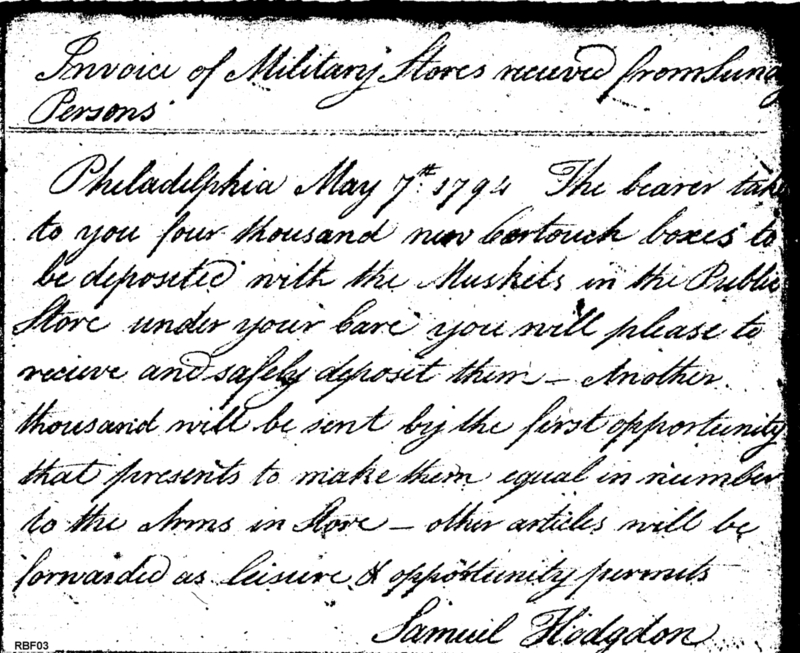 Invoice of Military Stores recieved from Sung
Persons
Philadelphia May 7th 1794 The bearer take
to you four thousand new Cartouch boxes to
be deposited with the Muskets in the Public
Store under your Care you will please to
recieve and safely deposit them – Another
thousand will be sent by the first opportunity
that presents to make them equal in number
to the Arms in Store – other articles will be
forwarded as leisure & opportunity permits
Samuel Hodgdon
RBF03